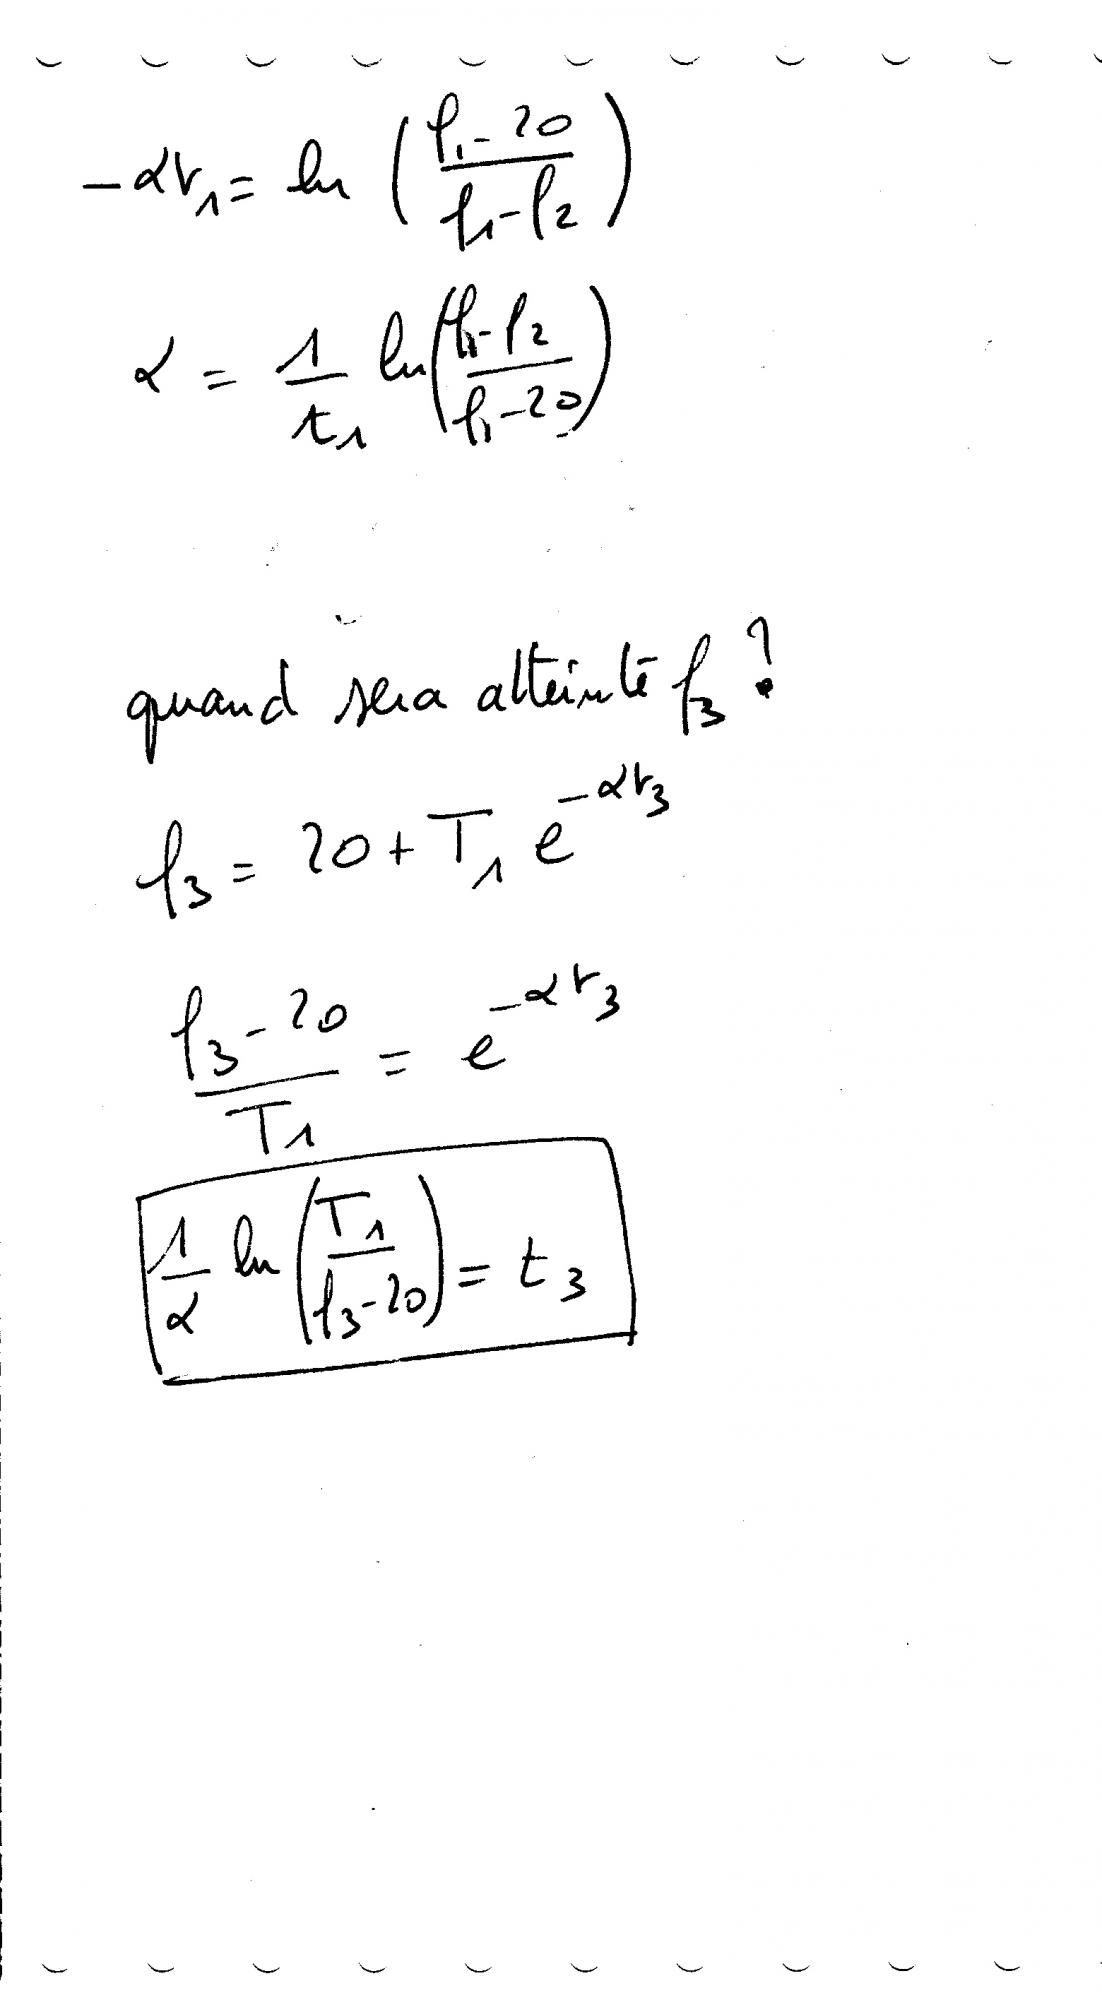 -αt₁ = ln (f₁-20 / f₁-f₂)
α = 1/t₁ ln(f₁-f₂ / f₁-20)
quand sera atteinte f₃?
f₃ = 20 + T₁ e^(-αt₃)
f₃-20 / T₁ = e^(-αt₃)
1/α ln (T₁ / f₃-20) = t₃